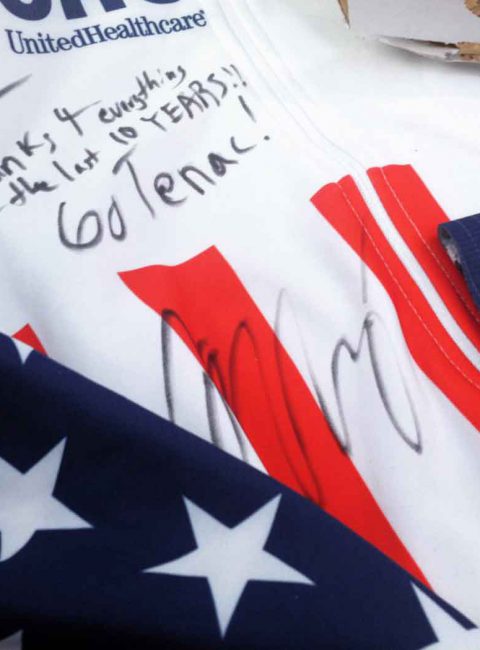 UnitedHealthcare®
4 everything
the last 10 YEARS!!
Go Tenac!